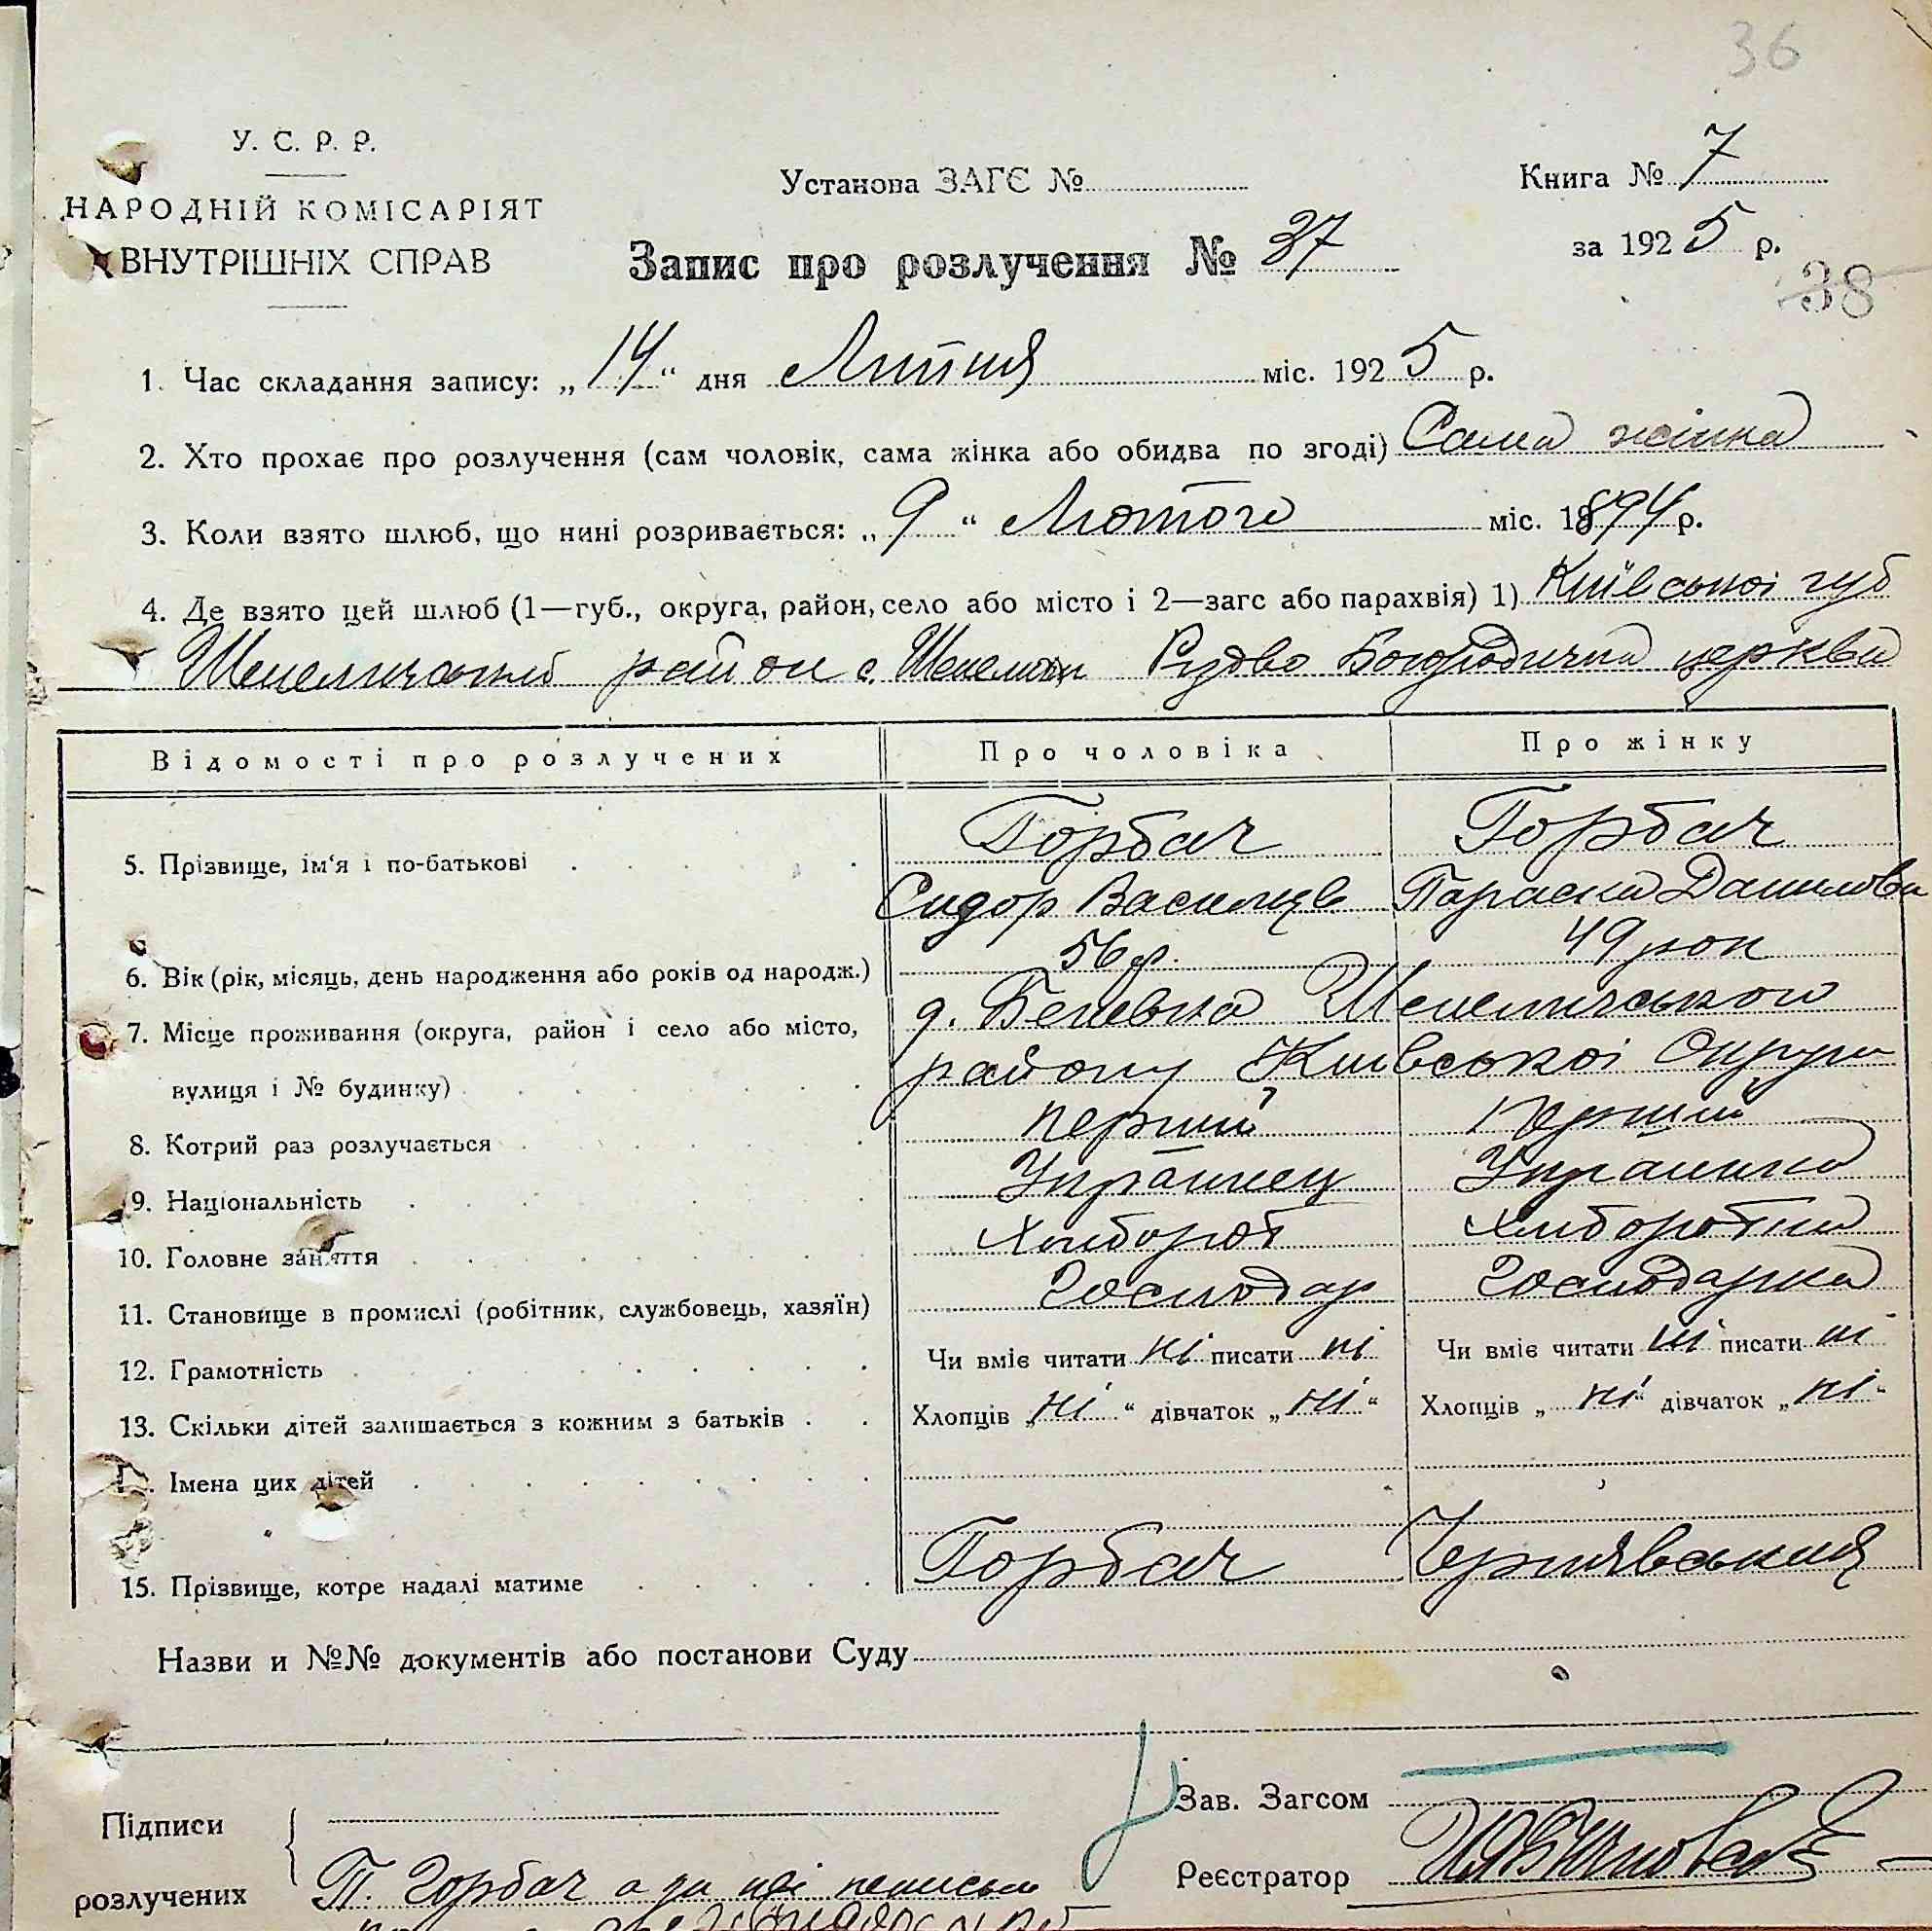 36
У. С. Р. Р.
НАРОДНІЙ КОМІСАРІЯТ
ВНУТРІШНІХ СПРАВ
Установа ЗАГС №
Книга № 7
за 1925 р.
Запис про розлучення № 37
38
1. Час складання запису: „14“ дня Липня міс. 1925 р.
2. Хто прохає про розлучення (сам чоловік, сама жінка або обидва по згоді) Сама жінка
3. Коли взято шлюб, що нині розривається: „9“ Лютого міс. 1894 р.
4. Де взято цей шлюб (1—губ., округа, район, село або місто і 2—загс або парахвія) 1) Київської губ
Шепелицький район с. Шепеличі Рздво Богородична церква
Відомості про розлучених Про чоловіка Про жінку
5. Прізвище, ім‘я і по-батькові Горбач Горбач
Сидор Васильєв Параска Данилова
6. Вік (рік, місяць, день народження або років од народж.) 56 р. 49 рок
7. Місце проживання (округа, район і село або місто, д. Беневка Шепеличського
вулиця і № будинку) району Київської Округи
8. Котрий раз розлучається перший перший
9. Національність Украинец Украинка
10. Головне заняття Хлибороб Хлиборобка
11. Становище в промислі (робітник, службовець, хазяїн) Господар Господарка
12. Грамотність Чи вміє читати ні писати ні Чи вміє читати ні писати ні
13. Скільки дітей залишається з кожним з батьків Хлопців „ні“ дівчаток „ні“ Хлопців „ні“ дівчаток „ні“
Імена цих дітей
15. Прізвище, котре надалі матиме Горбач Чернявська
Назви и №№ документів або постанови Суду
Підписи
розлучених
П. Горбач а за неі
Зав. Загсом
Реєстратор